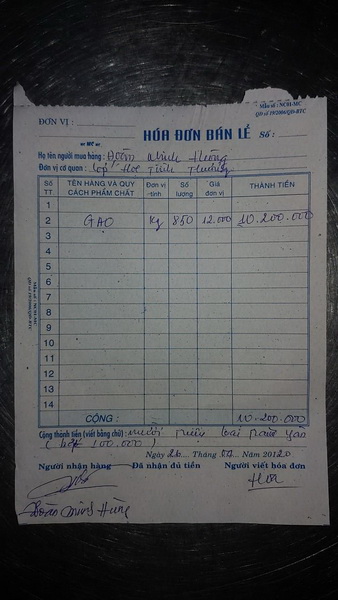 Mẫu số: NCH-MC
QĐ số 19/2006/QĐ-BTC
ĐƠN VỊ :
HÓA ĐƠN BÁN LẺ Số :
Họ tên người mua hàng : Đoàn Minh Hùng
Đơn vị cơ quan : Lớp Học Tình Thương
Số TT TÊN HÀNG VÀ QUY CÁCH PHẨM CHẤT Đơn vị tính Số lượng Giá đơn vị THÀNH TIỀN
1
2 GẠO Kg 850 12.000 10.200.000
3
4
5
6
7
8
9
10
11
12
13
14
CỘNG : 10.200.000
Cộng thành tiền (viết bằng chữ) : mười triệu hai trăm
100.000 )
Ngày 26 Tháng Năm 20
Người nhận hàng Đã nhận đủ tiền Người viết hóa đơn
Đoàn Minh Hùng